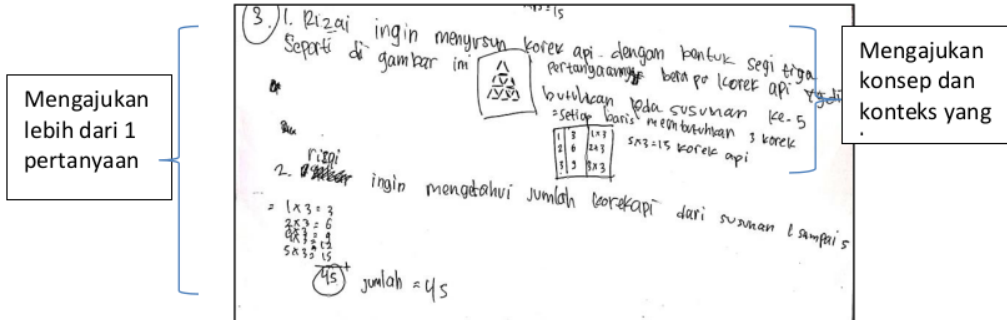 Mengajukan
lebih dari 1
pertanyaan
3. 1. Rizqi ingin menyusun korek api dengan bentuk segi tiga
Seperti di gambar ini pertanyaannya berapa korek api yg di
butuhkan pada susunan ke-5
=setiap baris membutuhkan 3 korek
1 3 1x3
2 6 2x3
3 9 3x3
5x3=15 korek api
2. rizqi ingin mengetahui jumlah korekapi dari susunan 1 sampai 5
= 1x3=3
2x3=6
3x3=9
4x3=12
5x3=15
45 +
jumlah = 45
Mengajukan
konsep dan
konteks yang